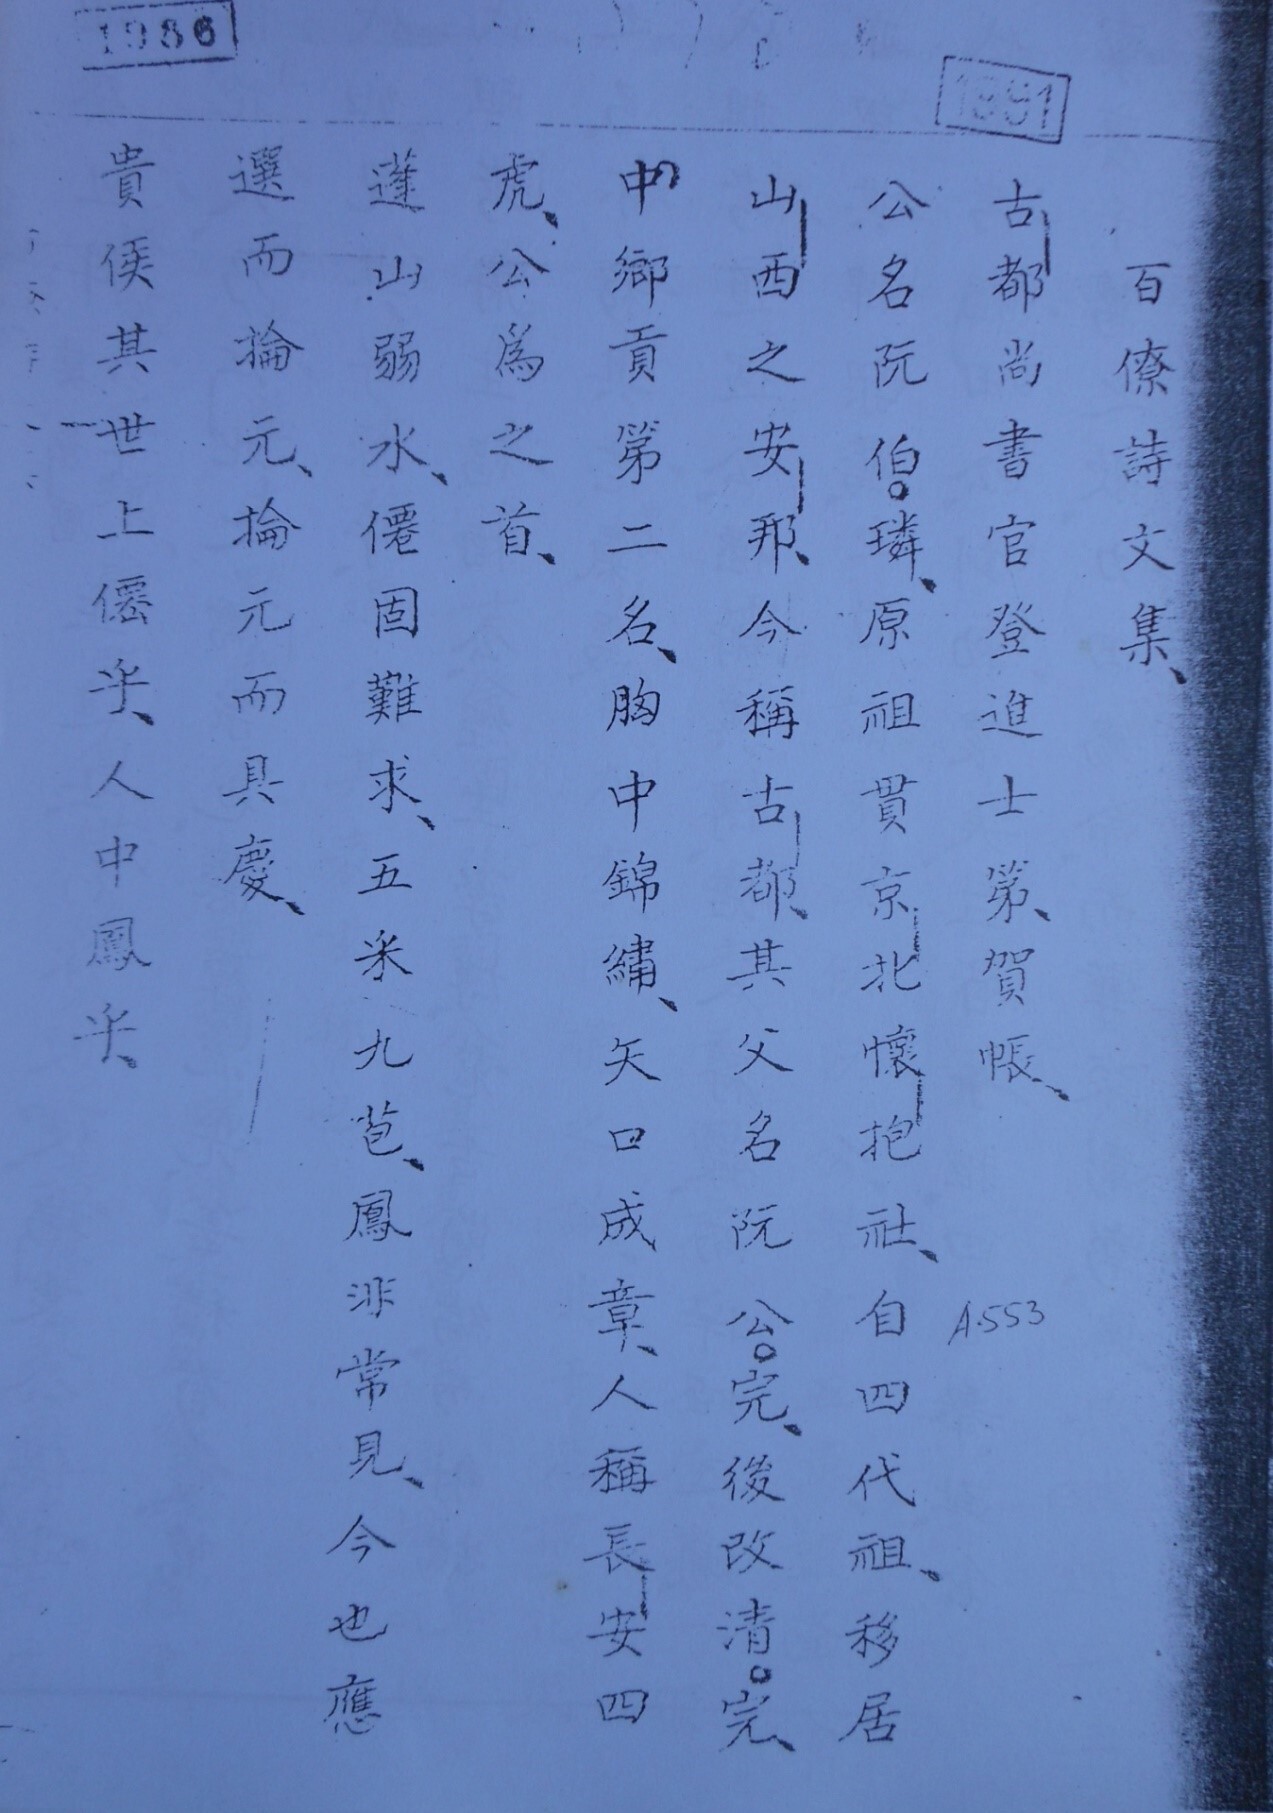 1986
1991
百僚詩文集、
古都尚書官登進士第、賀帳、
A.553
公名阮伯。璘、原祖貫京北懷抱社、自四代祖、移居
山西之安那、今稱古都、其父名阮公。完、後改清。完、
中鄉貢第二名、胸中錦繡、矢口成章、人稱長安四
虎、公爲之首、
蓬山弱水、僊固難求、五采九苞、鳳非常見、今也應
選而掄元、掄元而具慶、
貴侯其世上僊乎、人中鳳乎、